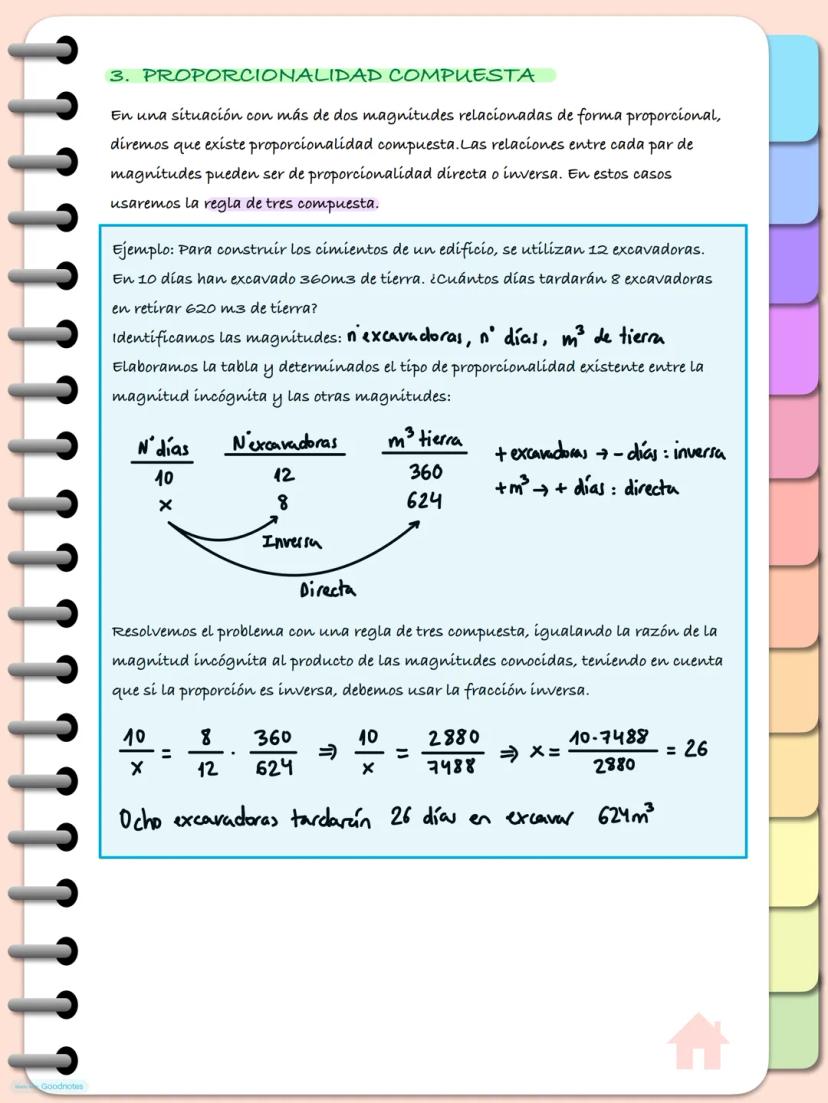 3. PROPORCIONALIDAD COMPUESTA
En una situación con más de dos magnitudes relacionadas de forma proporcional,
diremos que existe proporcionalidad compuesta.Las relaciones entre cada par de
magnitudes pueden ser de proporcionalidad directa o inversa. En estos casos
usaremos la regla de tres compuesta.
Ejemplo: Para construir los cimientos de un edificio, se utilizan 12 excavadoras.
En 10 días han excavado 360m3 de tierra. ¿Cuántos días tardarán 8 excavadoras
en retirar 620 m3 de tierra?
Identificamos las magnitudes: nº excavadoras, nº días, m³ de tierra
Elaboramos la tabla y determinados el tipo de proporcionalidad existente entre la
magnitud incógnita y las otras magnitudes:
Nº días Nº excavadoras m³ tierra
10 12 360
x 8 624
+ excavadoras → - días : inversa
+ m³ → + días : directa
Inversa
Directa
Resolvemos el problema con una regla de tres compuesta, igualando la razón de la
magnitud incógnita al producto de las magnitudes conocidas, teniendo en cuenta
que si la proporción es inversa, debemos usar la fracción inversa.
10/x = 8/12 · 360/624 ⇒ 10/x = 2880/7488 ⇒ x = 10·7488/2880 = 26
Ocho excavadoras tardarán 26 días en excavar 624m³
Goodnotes